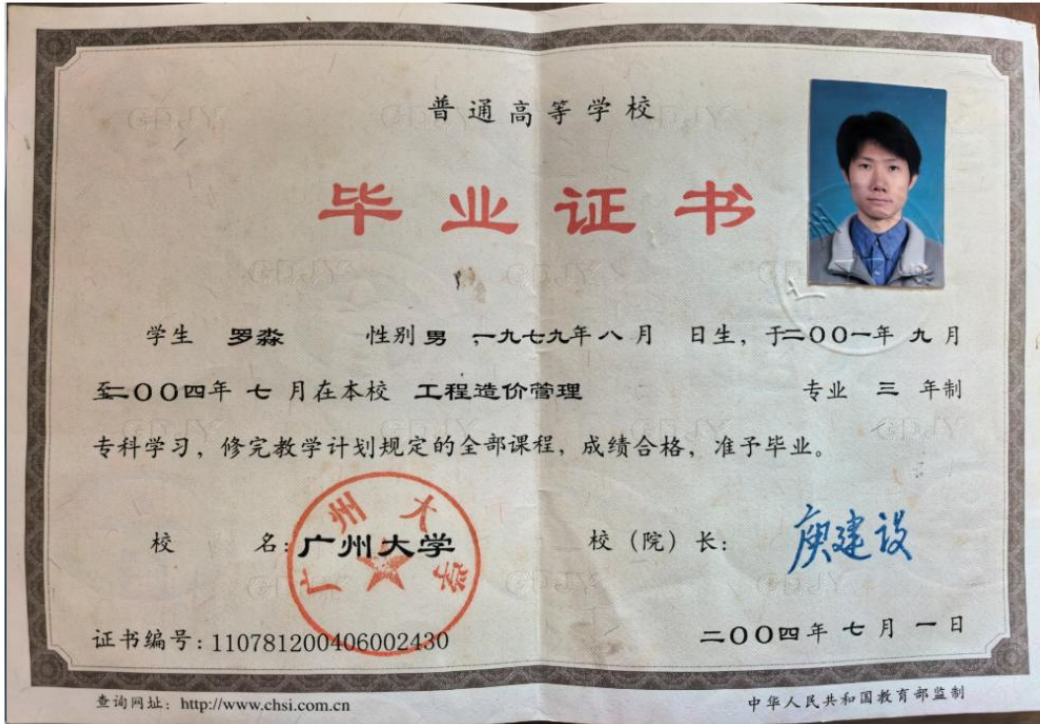 普通高等学校
毕业证书
学生 罗淼 性别 男 一九七九年八月 日生，于二〇〇一年 九 月
至二〇〇四年 七 月在本校 工程造价管理 专业 三 年制
专科学习，修完教学计划规定的全部课程，成绩合格，准予毕业。
校 名：广州大学 校（院）长：庾建设
广州大学
证书编号：110781200406002430 二〇〇四年 七 月 一 日
查询网址：http://www.chsi.com.cn 中华人民共和国教育部监制